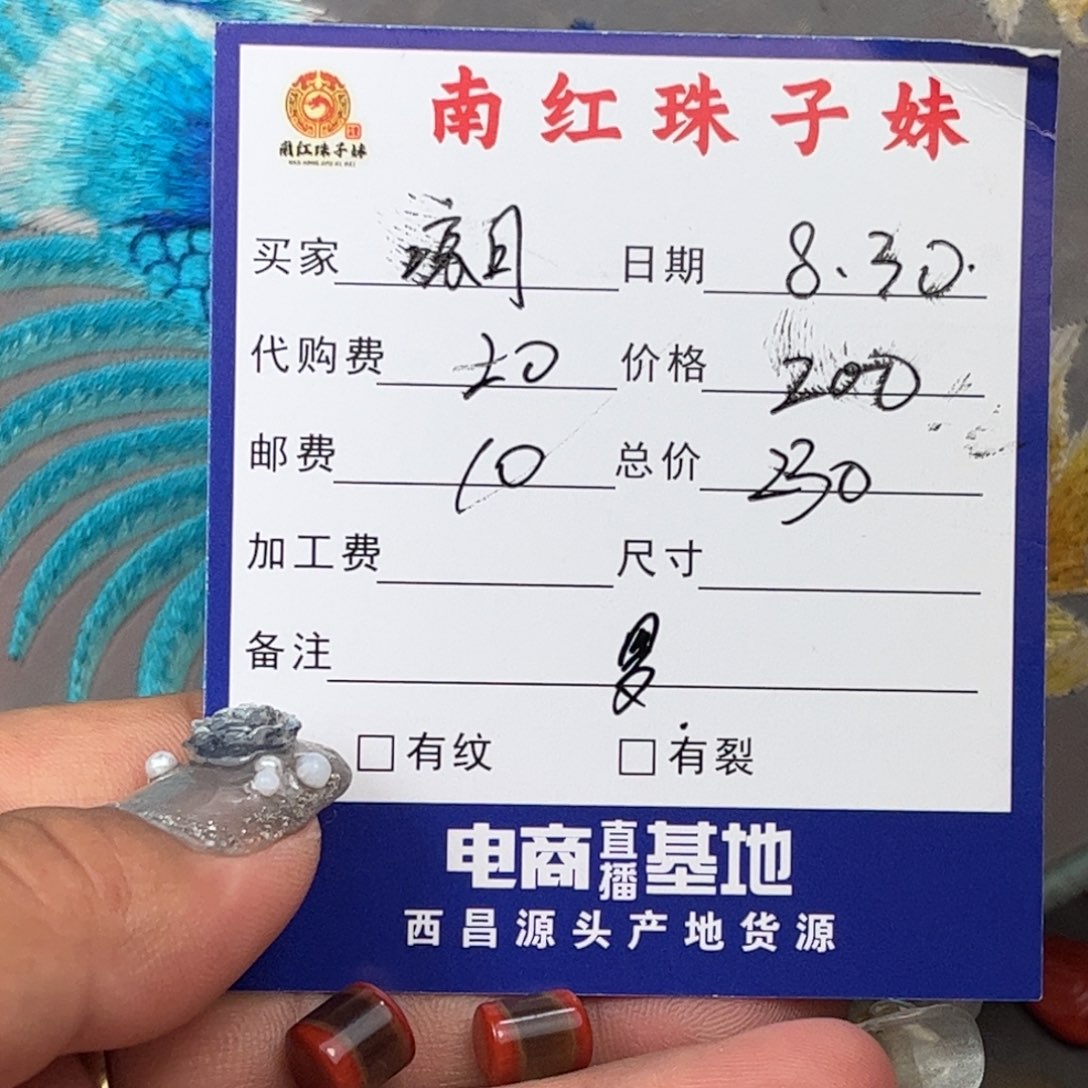 南红珠子妹
南红珠子妹
买家 日期 8.30.
代购费 20 价格 200
邮费 10 总价 230
加工费 尺寸
备注
有纹 有裂
电商直播基地
西昌源头产地货源